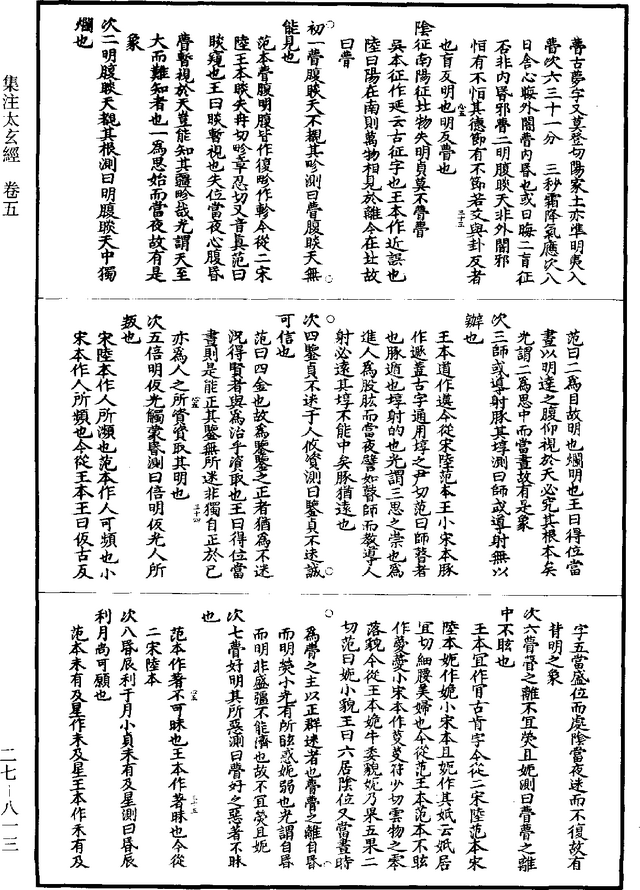 瞢古夢字又莫登切陽家土亦準明夷入
瞢次六三十一分　三秒霜降氣應次八
日舍心晦外闇瞢内昬也或曰晦二盲征
否非内昬邪瞢二明腹睒天非外闇邪
怕有不怕其德節有不節若交與卦反者
也盲反明也明反瞢也
陰征南陽征北物失明貞莫不瞢瞢
吴本征作延云古征字也王本作近誤也
陸曰陽在南則萬物相見於離今在北故
曰瞢
初一瞢腹睒天不覩其畛測曰瞢腹睒天無
能見也
范本瞢腹明腹皆作復畛作軫今從二宋
陸王本睒失冉切畛章忍切又音真范曰
睒窺也王曰睒暫視也失位當夜心腹昬
瞢暫視於天豈能知其疆畛哉光謂天至
大而難知者也一爲思始而當夜故有是
象
次二明腹睒天覩其根測曰明腹睒天中獨
爛也
范曰二爲目故明也爛明也王曰得位當
晝以明達之腹仰視於天必究其根本矣
光謂二爲思中而當晝故有是象
次三師或導射豚其埻測曰師或導射無以
辦也
王本道作遵今從宋陸范本王小宋本豚
作遯蓋古字通用埻之尹切范曰師瞽者
也豚遁也埻射的也光謂三思之崇也爲
進人爲股肱而當夜譬如瞽師而教導人
射必遠其埻不能中矣豚猶遠也
次四鑒貞不迷于人攸資測曰鑒貞不迷誠
可信也
范曰四金也故爲鑒鑒之正者猶爲不迷
況得賢者與爲治乎資取也王曰得位當
晝則是能正其鑒無所迷非獨自正於已
亦爲人之所資資取其明也
次五倍明仮光觸蒙昬測曰倍明仮光人所
叛也
宋陸本作人所瀕也范本作人可頻也小
宋本作人所頻也今從王本王曰仮古反
字五當盛位而處陰當夜迷而不復故有
背明之象
次六瞢瞢之離不宜熒且妮測曰瞢瞢之離
中不眩也
王本宜作肎古肯字今從二宋陸范本宋
陸本妮作媿小宋本且妮作其妮云妮居
宜切細腰美婦也今從范王本范本不眩
作薆薆小宋本作芟芟苻少切雲物之零
落貌今從王本妮牛委貌妮乃果五果二
切范曰妮小貌王曰六居陰位又當晝時
爲瞢之主以正群迷者也瞢瞢之離自昬
而明熒小光有所眩惑妮弱也光謂自昬
而明非盛彊不能濟也故不宜熒且妮
次七瞢好明其所惡測曰瞢好之惡著不昧
也
范本作著不可昧也王本作著昧也今從
二宋陸本
次八昬辰利于月小貞未有及星測曰昬辰
利月尚可願也
范本未有及星作未及星王本作未有及
集注太玄經　卷五
二七－八一三